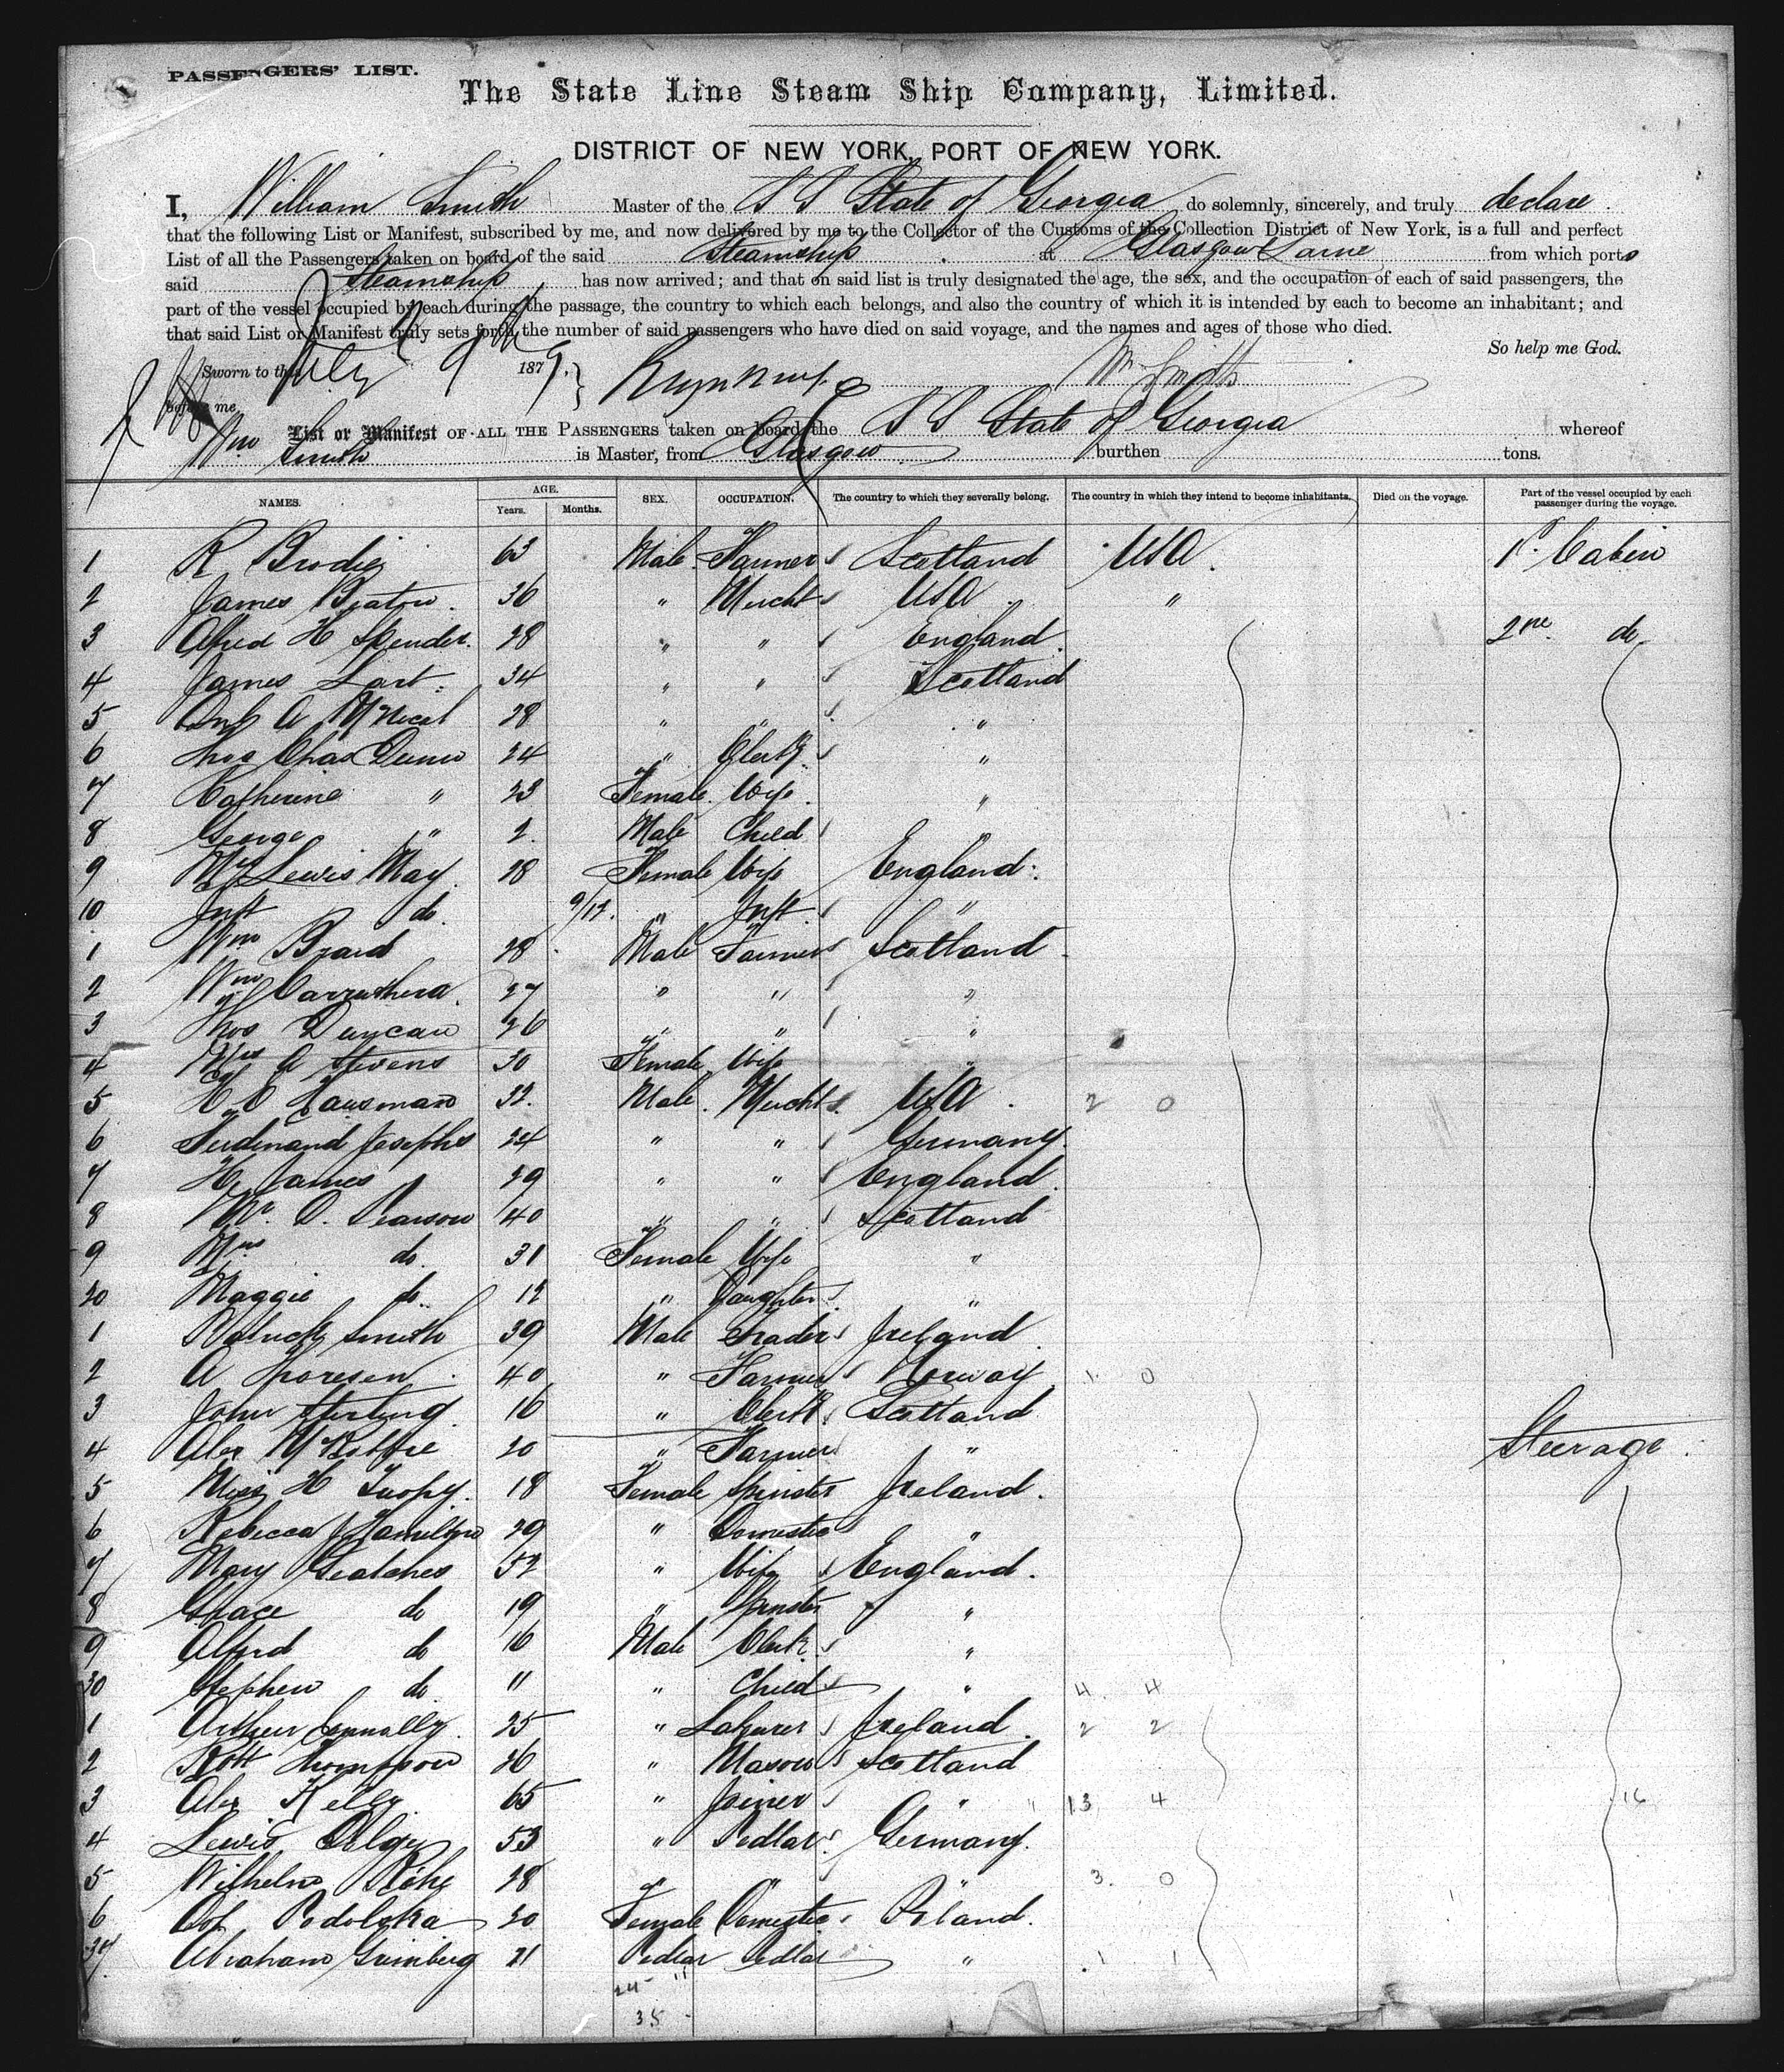 PASSENGERS' LIST.
The State Line Steam Ship Company, Limited.
DISTRICT OF NEW YORK, PORT OF NEW YORK.
I, William Smith Master of the S S State of Georgia do solemnly, sincerely, and truly declare
that the following List or Manifest, subscribed by me, and now delivered by me to the Collector of the Customs of the Collection District of New York, is a full and perfect
List of all the Passengers taken on board of the said Steamship at Glasgow & Larne from which ports
said Steamship has now arrived; and that on said list is truly designated the age, the sex, and the occupation of each of said passengers, the
part of the vessel occupied by each during the passage, the country to which each belongs, and also the country of which it is intended by each to become an inhabitant; and
that said List or Manifest truly sets forth the number of said passengers who have died on said voyage, and the names and ages of those who died.
So help me God.
Sworn to this July 9th 1879. Wm Smith
before me
List or Manifest OF ALL THE PASSENGERS taken on board the S S State of Georgia whereof
Wm Smith is Master, from Glasgow burthen tons.
NAMES. AGE. Years. Months. SEX. OCCUPATION. The country to which they severally belong. The country in which they intend to become inhabitants. Died on the voyage. Part of the vessel occupied by each passenger during the voyage.
1 R Brodie 63 Male Farmer Scotland USA. 1st Cabin
2 James Beaton 36 " Mercht USA "
3 Alfred H Spender 28 " " England 2nd do
4 James 34 " " Scotland
5 A 28 " " "
6 Thos Chas Dunn 24 " Clerk "
7 Catherine " 23 Female Wife "
8 George " 2 Male Child "
9 Mrs Lewis May 28 Female Wife England
10 Inft do 9/12 " Inft "
1 Wm Braid 28 Male Farmer Scotland
2 Wm Carruthers 27 " " "
3 Thos Duncan 26 " " "
4 Mrs A Stevens 30 Female Wife "
5 H C Hausman 32 Male Mercht USA 2 0
6 Ferdinand Josephs 24 " " Germany
7 H James 29 " " England
8 Mr D. Pearson 40 " " Scotland
9 Mrs do 31 Female Wife "
20 Maggie do 12 " Daughter "
1 Patrick Smith 39 Male Trader Ireland
2 A Thoresen 40 " Farmer Norway 1 0
3 John Stirling 16 " Clerk Scotland
4 Alex 20 " Farmer " Steerage
5 Miss H 18 Female Spinster Ireland
6 Rebecca J Hamilton 29 " Domestic "
7 Mary Geatches 52 " Wife England
8 Grace do 19 " Spinster "
9 Alfred do 16 Male Clerk "
30 Stephen do 11 " Child " 4 4
1 Arthur Connolly 25 " Labourer Ireland 2 2
2 Robt Thompson 26 " Mason Scotland
3 Alex Kelly 65 " Joiner " 13 4 16
4 Lewis 53 " Pedlar Germany
5 Wilhelm 28 " " " 3 0
6 Podolska 20 Female Domestic Poland
37 Abraham Grinberg 21 Pedlar Pedlar " 1 1
24 11
35